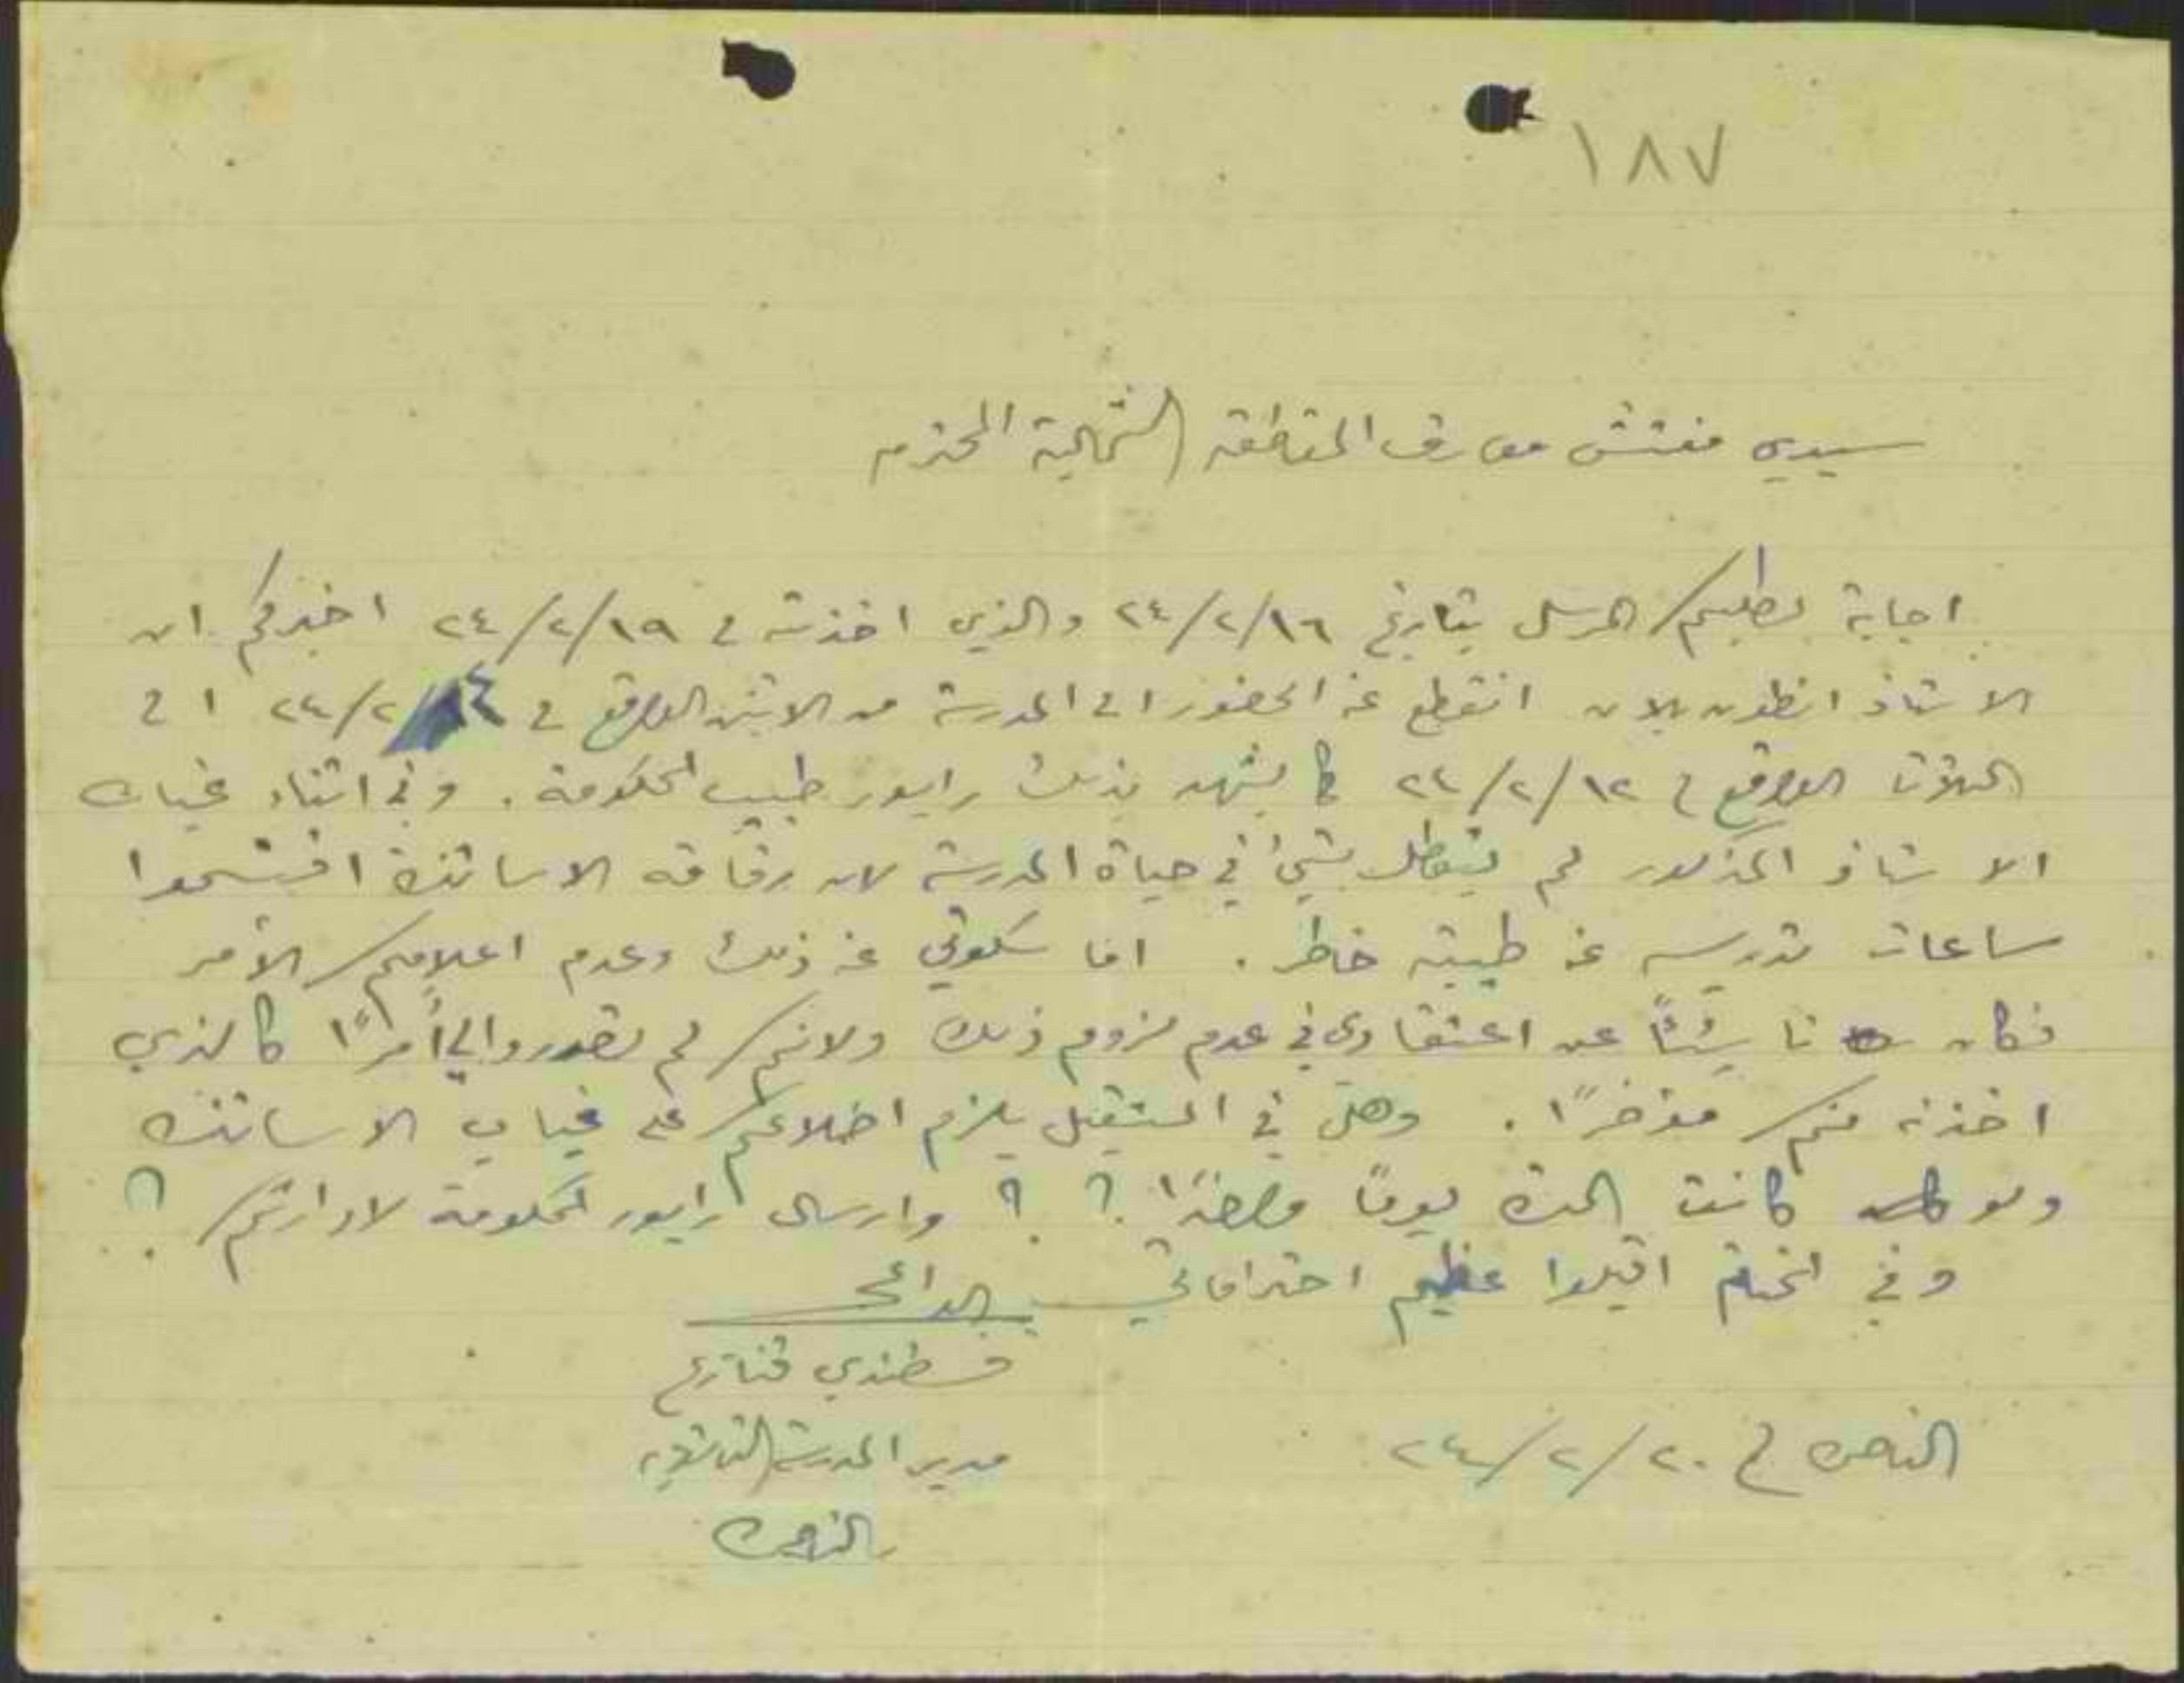 ١٨٧
سيدي مفتش معارف المقاطعة الشمالية المحترم
اجابة لطلبكم المرسل بتاريخ ١٦/٢/٢٤ والذي اخذته في ١٩/٢/٢٤ اخبركم ان
الاستاذ انطون بلان انقطع عن الحضور الى المدرسة من الاثنين الواقع في ٤/٢/٢٤ الى
الثلاثا الواقع في ١٢/٢/٢٤ كما يشهد بذلك رابور طبيب الحكومة . وفي اثناء غياب
الاستاذ المذكور لم يتعطل شيئ في حياة المدرسة لان رفاقه الاساتذة اقتسموا
ساعات تدريسه عن طيبة خاطر . اما سكوتي عن ذلك وعدم اعلامكم الأمر
فكان ناشئاً عن اعتقادي في عدم لزوم ذلك ولانكم لم تصدروا لي أمراً كالذي
اخذته منكم مؤخراً . وهل في المستقبل يلزم اطلاعكم على غياب الاساتذة
ولو كانت المدة يوماً واحداً ؟ ؟ وارسال رابور الحكومة لادارتكم ؟
وفي الختام اقبلوا عظيم احتراماتي الداعي
قسطندي قنازع
مدير المدرسة
الناصرة في ٢٠/٢/٢٤
الناصرة